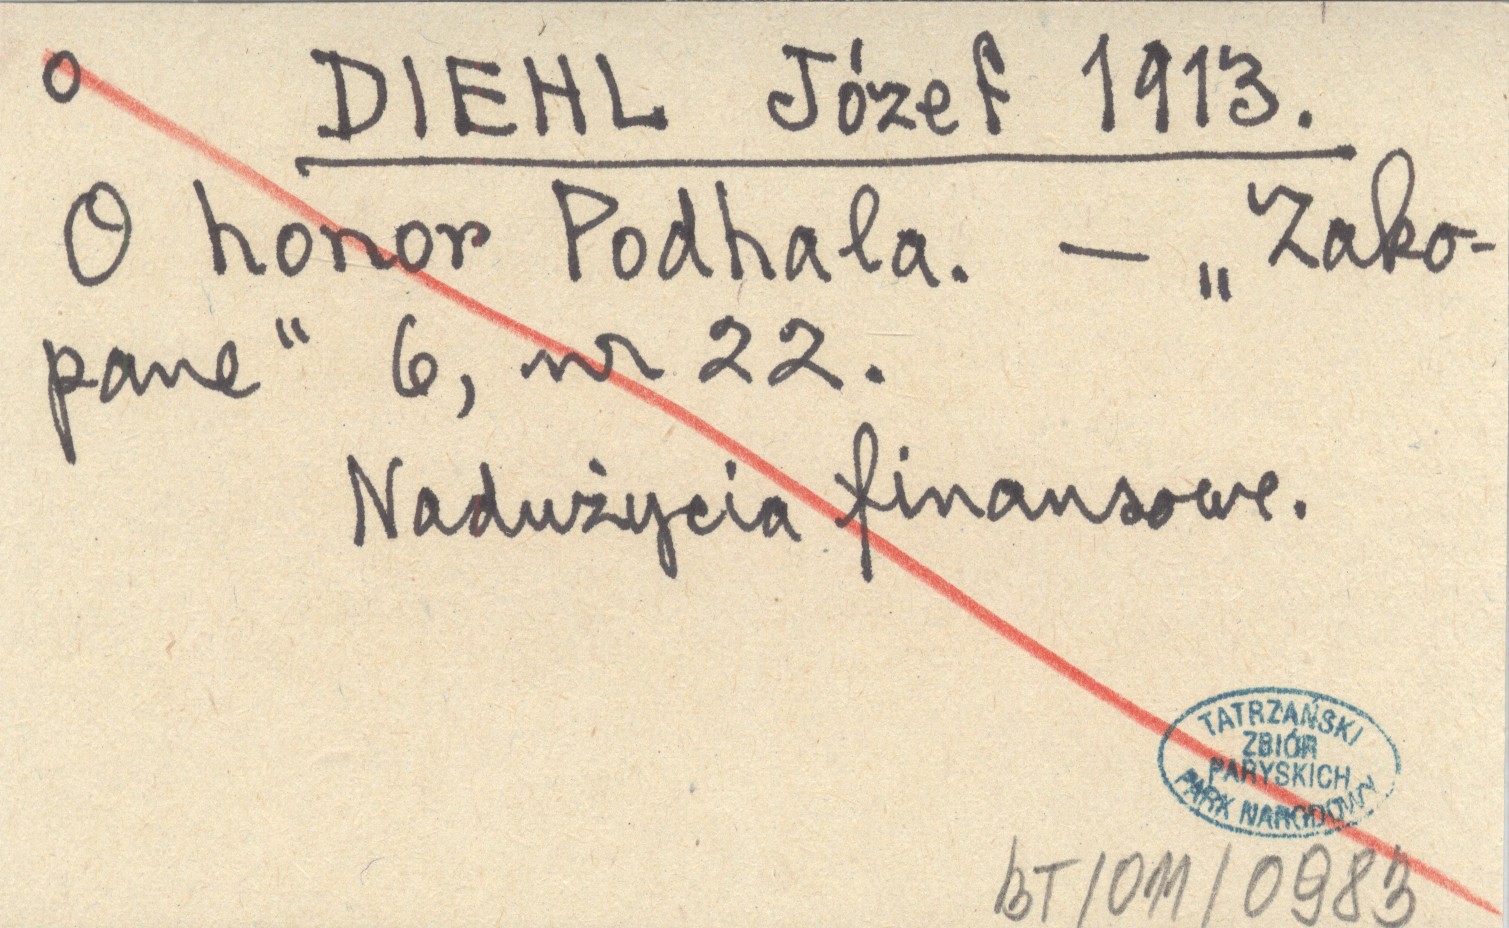 o DIEHL Józef 1913.
O honor Podhala. — „Zako-
pane“ 6, nr 22.
Nadużycia finansowe.
TATRZAŃSKI
ZBIÓR
PARYSKICH
PARK NARODOWY
BT/011/0983